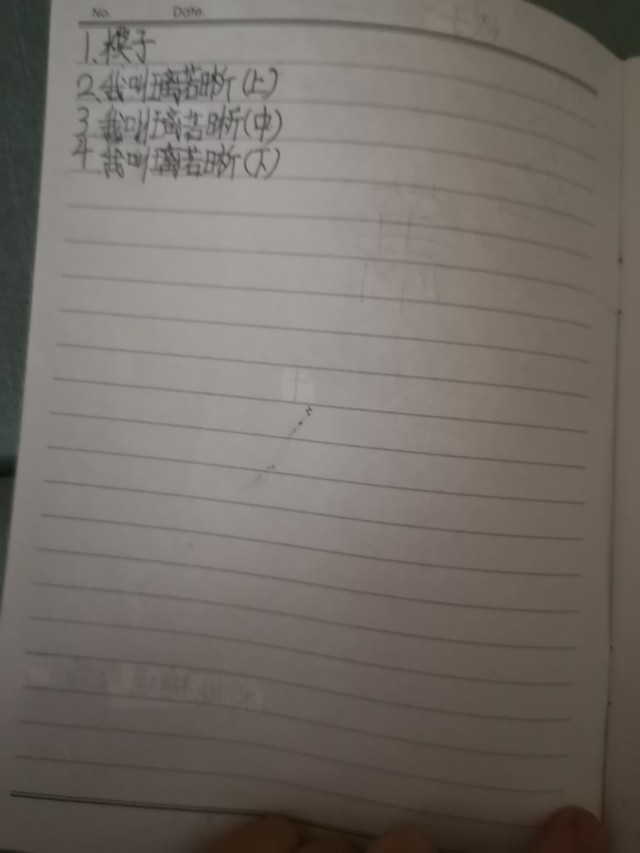 No. Date.
1、楔子
2、我叫璃若晰(上)
3、我叫璃若晰(中)
4、我叫璃若晰(下)